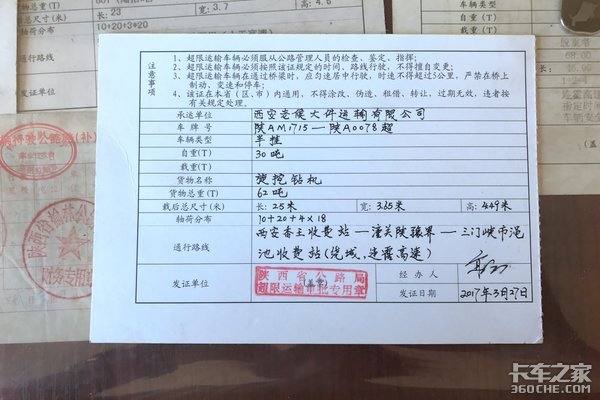 长:23
宽:3.7
高:4.6
10+20+3*20
车辆类型
自重(T)
注意事项
1、超限运输车辆必须服从公路管理人员的检查、鉴定,指挥;
2、超限运输车辆必须按照该证规定的时间、路线行驶,不得擅自变更;
3、超限运输车辆在通过桥梁时,应匀速居中行驶,时速不得超过5公里,严禁在桥上
制动、变速和停车;
4、该证在本省(区、市)内通用,不得涂改、伪造、租借、转让,过期无效,违者按
有关规定处理。
承运单位 西安老侯大件运输有限公司
车 牌 号 陕AM1715—陕A0078超
车辆类型 半挂
自重(T) 30吨
载重(T)
货物名称 旋挖钻机
货物总重(T) 62吨
载后总尺寸(米) 长:25米 宽:3.65米 高:4.49米
轴荷分布 10+20+4×18
通行路线 西安香王收费站—潼关陕豫界—三门峡市渑
池收费站(绕城,连霍高速)
发证单位 (盖章) 经 办 人
陕西省公路局
超限运输审批专用章
发证日期 2017年3月27日
财务专用章
卡车之家
360CHE.COM